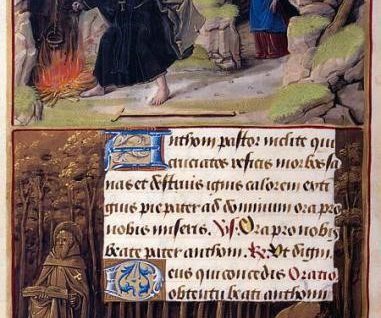 Anthoni pastor inclite qui
cruciatos reficis morbos sa
nas et destruis ignis calorem exti
guis pie pater ad dominum ora pro
nobis miseris. Vs. Ora pro nobis
beate pater anthoni. Re. Ut digni
eus qui concedis Oratio
obtentu beati anthonii